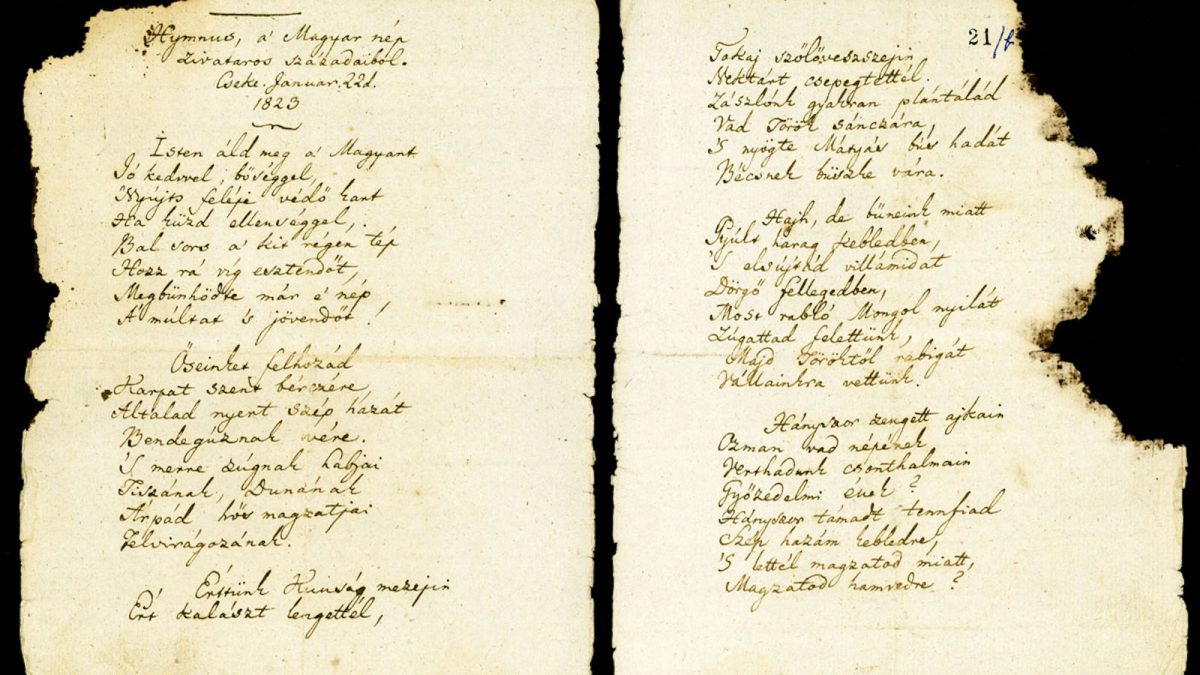 Hymnus, a' Magyar nép
Zivataros századaiból.
Cseke. Januar. 22d.
1823
Isten áld meg a' Magyart
Jó kedvvel, bőséggel,
Nyújts feléje védő kart
Ha küzd ellenséggel,
Bal sors a' kit régen tép
Hozz rá víg esztendőt,
Megbünhödte már é nép
A múltat 's jövendőt!
Őseinket felhozád
Kárpát szent bérczére,
Általad nyert szép hazát
Bendegúznak vére.
'S merre zúgnak habjai
Tiszának, Dunának
Árpád hős magzatjai
Felvirágozának.
Értünk Kunság mezejin
Ért kalászt lengettél,
21/b
Tokaj szőlőveszszejin
Nektárt csepegtettél.
Zászlónk gyakran plántálád
Vad Török sánczára,
'S nyögte Mátyás bús hadát
Bécsnek büszke vára.
Hajh, de bűneink miatt
Gyúlt harag kebledben,
'S elsújtád villámidat
Dörgő fellegedben,
Most rabló Mongol nyilát
Zúgattad felettünk,
Majd Töröktől rabigát
Vállainkra vettünk.
Hányszor zengett ajkain
Ozman vad népének
Vert hadunk csonthalmain
Győzedelmi ének?
Hányszor támadt tennfiad
Szép hazám kebledre,
'S lettél magzatod miatt,
Magzatod hamvedre?